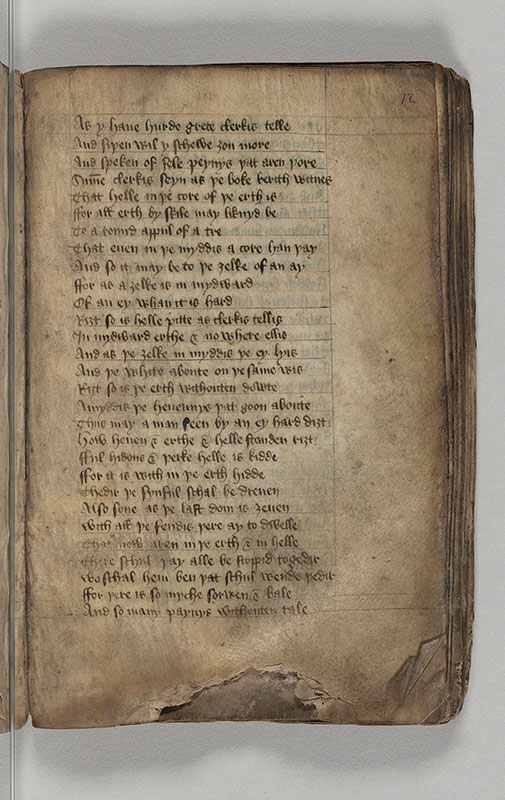 12
As y haue hurde grete clerkis telle
And siþen wil y schewe ȝou more
And speken of helle peynys þat aren þore
Summe clerkis seyn as þe boke berith witnes
That helle in þe core of þe erth is
ffor all erth by skile may liknyd be
To a round appul of a tre
That euen in þe myddis a core han þay
And so it may be to þe ȝelke of an ay
ffor as a ȝelke is in mydward
Of an ey whan it is hard
Riȝt so is helle pitte as clerkis tellis
In mydward erthe & nowhere ellis
And as þe ȝelke in myddis þe ey lyis
And þe white aboute on þe same wis
Riȝt so is þe erth withouten dowte
Amyddis þe heuenys þat goon aboute
Thus may a man seen by an ey hard diȝt
How heuen & erthe & helle standen riȝt
fful hidous & þerke helle is kidde
ffor it is with in þe erth hidde
Thedir þe synful schal be dreuen
Also sone as þe last dom is ȝeuen
With all þe fendis þere ay to dwelle
That now aren in þe erth & in helle
There schul þay alle be stoppid togedir
Wo schal hem ben þat schul wende þedir
ffor þere is so myche sorwen & bale
And so many paynys withouten tale